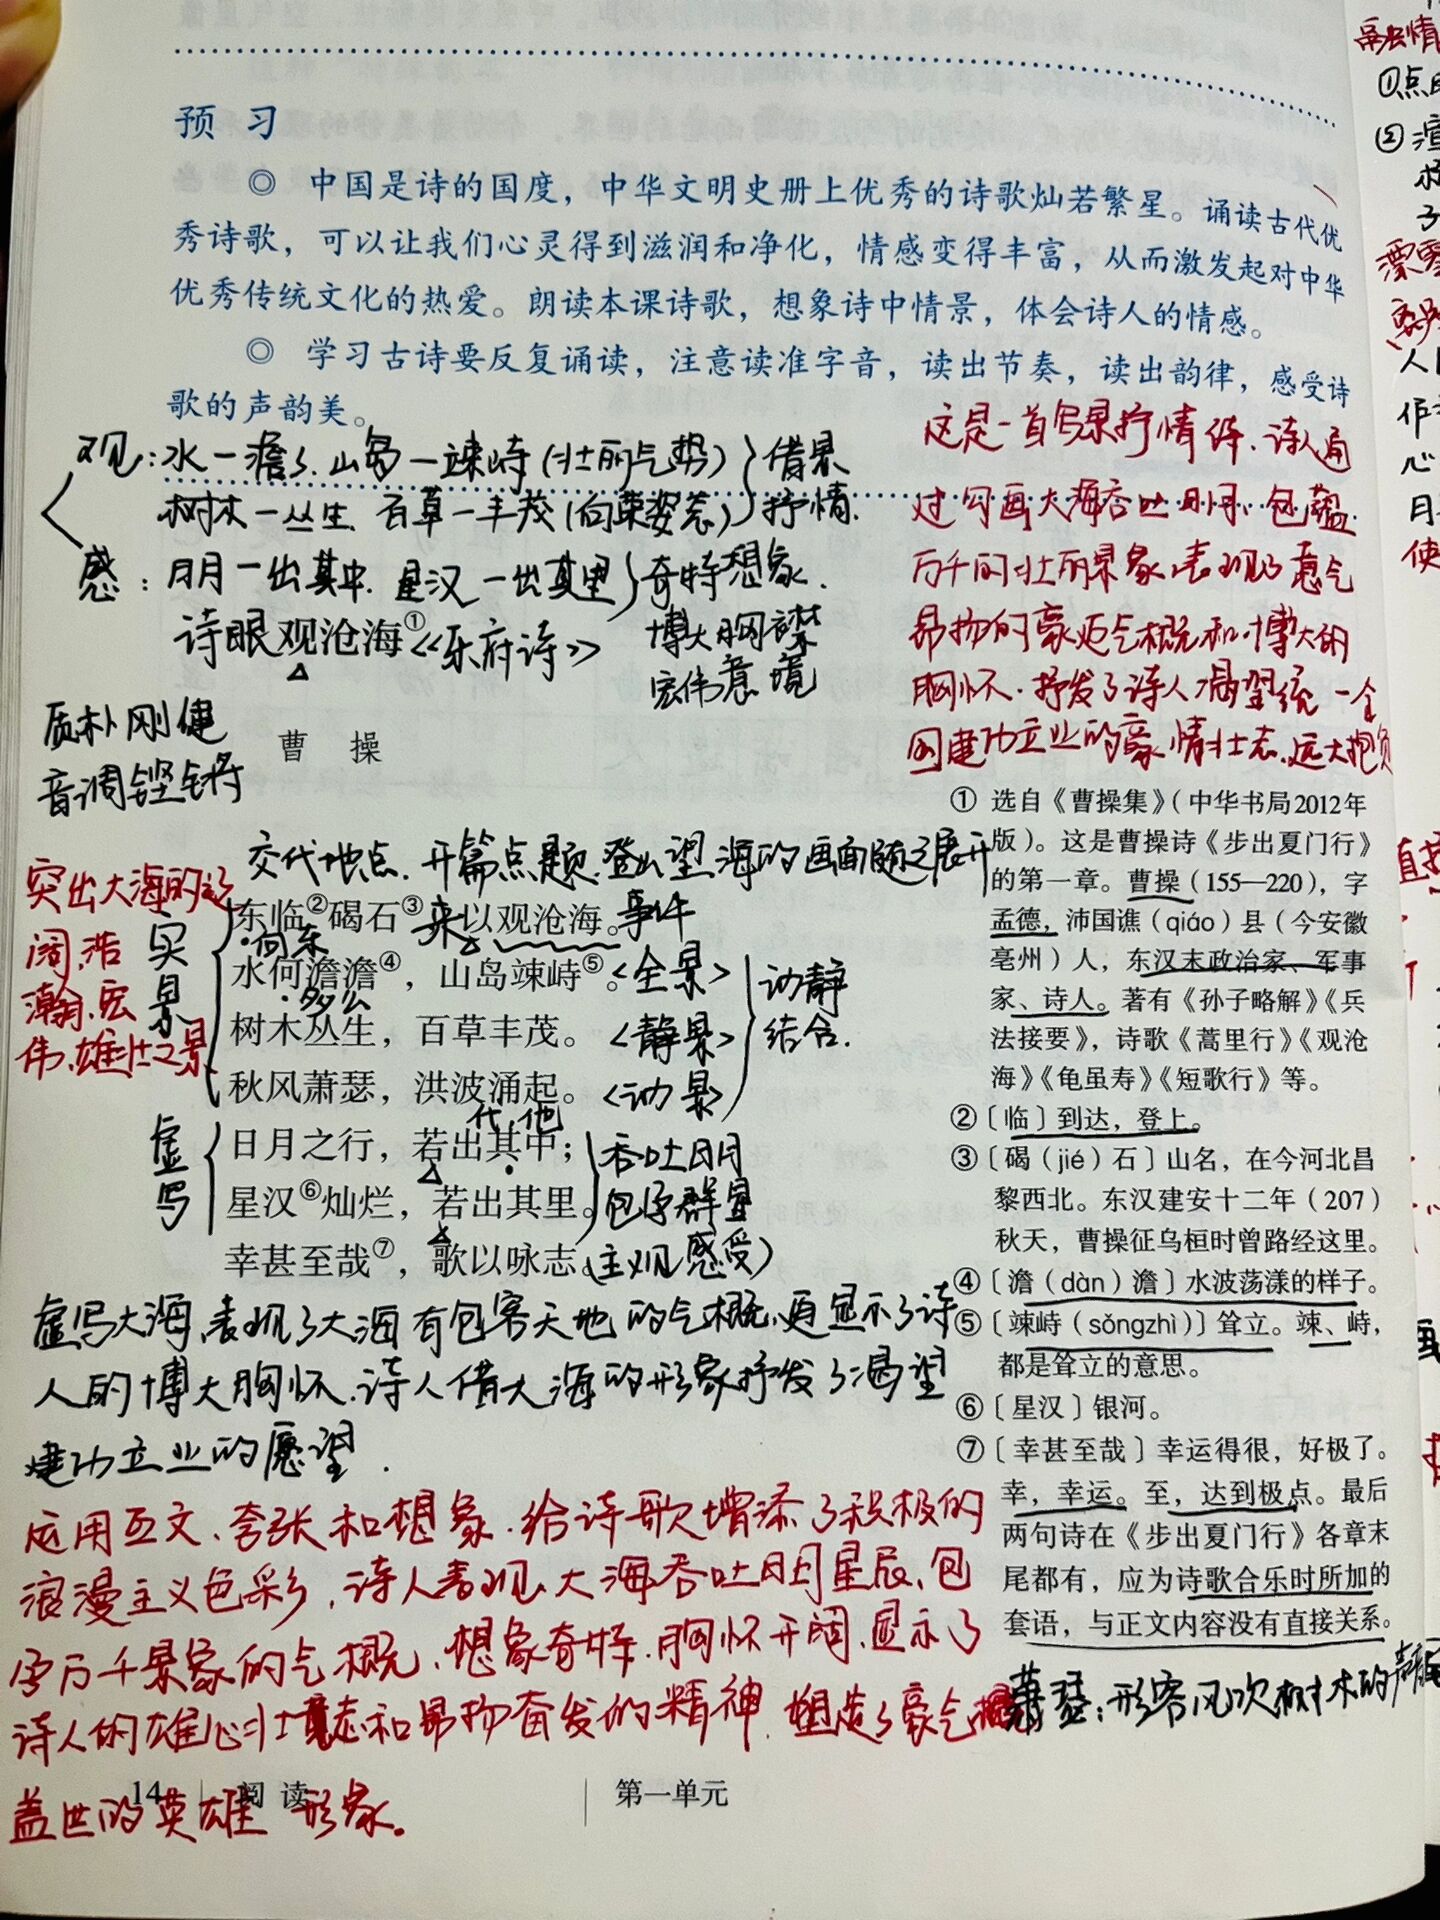 预 习
◎ 中国是诗的国度，中华文明史册上优秀的诗歌灿若繁星。诵读古代优
秀诗歌，可以让我们心灵得到滋润和净化，情感变得丰富，从而激发起对中华
优秀传统文化的热爱。朗读本课诗歌，想象诗中情景，体会诗人的情感。
◎ 学习古诗要反复诵读，注意读准字音，读出节奏，读出韵律，感受诗
歌的声韵美。
观：水一澹澹、山岛一竦峙（壮丽气势）
树木一丛生、百草一丰茂（向荣姿态）
借景
抒情.
感：日月一出其中、星汉一出其里
奇特想象.
博大胸襟
宏伟意境
诗眼 观沧海①《乐府诗》
质朴刚健
音调铿锵
曹 操
这是一首写景抒情诗、诗人通
过勾画大海吞吐日月、包蕴
万千的壮丽景象、表现了意气
昂扬的豪迈气概和博大的
胸怀、抒发了诗人渴望统一全
国建功立业的豪情壮志、远大抱负
交代地点、开篇点题、登山望海的画面随之展开
突出大海的辽
阔、浩
瀚、宏
伟、雄壮之景
实
景
东临②碣石③，以观沧海。
来
事件
向东
水何澹澹④，山岛竦峙⑤。<全景>
多么
树木丛生，百草丰茂。<静景>
秋风萧瑟，洪波涌起。<动景>
动静
结合.
代，他
虚
写
日月之行，若出其中；
星汉⑥灿烂，若出其里。
吞吐日月
包孕群星
幸甚至哉⑦，歌以咏志。（主观感受）
虚写大海、表现了大海有包容天地的气概、更显示了诗
人的博大胸怀、诗人借大海的形象抒发了渴望
建功立业的愿望.
运用互文、夸张和想象、给诗歌增添了积极的
浪漫主义色彩，诗人表现大海吞吐日月星辰、包
孕万千景象的气概、想象奇特、胸怀开阔、显示了
诗人的雄心壮志和昂扬奋发的精神、塑造了豪气
盖世的英雄形象。
① 选自《曹操集》（中华书局2012年
版）。这是曹操诗《步出夏门行》
的第一章。曹操（155—220），字
孟德，沛国谯（qiáo）县（今安徽
亳州）人，东汉末政治家、军事
家、诗人。著有《孙子略解》《兵
法接要》，诗歌《蒿里行》《观沧
海》《龟虽寿》《短歌行》等。
②〔临〕到达，登上。
③〔碣（jié）石〕山名，在今河北昌
黎西北。东汉建安十二年（207）
秋天，曹操征乌桓时曾路经这里。
④〔澹（dàn）澹〕水波荡漾的样子。
⑤〔竦峙（sǒngzhì）〕耸立。竦、峙，
都是耸立的意思。
⑥〔星汉〕银河。
⑦〔幸甚至哉〕幸运得很，好极了。
幸，幸运。至，达到极点。最后
两句诗在《步出夏门行》各章末
尾都有，应为诗歌合乐时所加的
套语，与正文内容没有直接关系。
萧瑟：形容风吹树木的声音
14 阅读
第一单元
①点
②渲
人
作
心
月
使